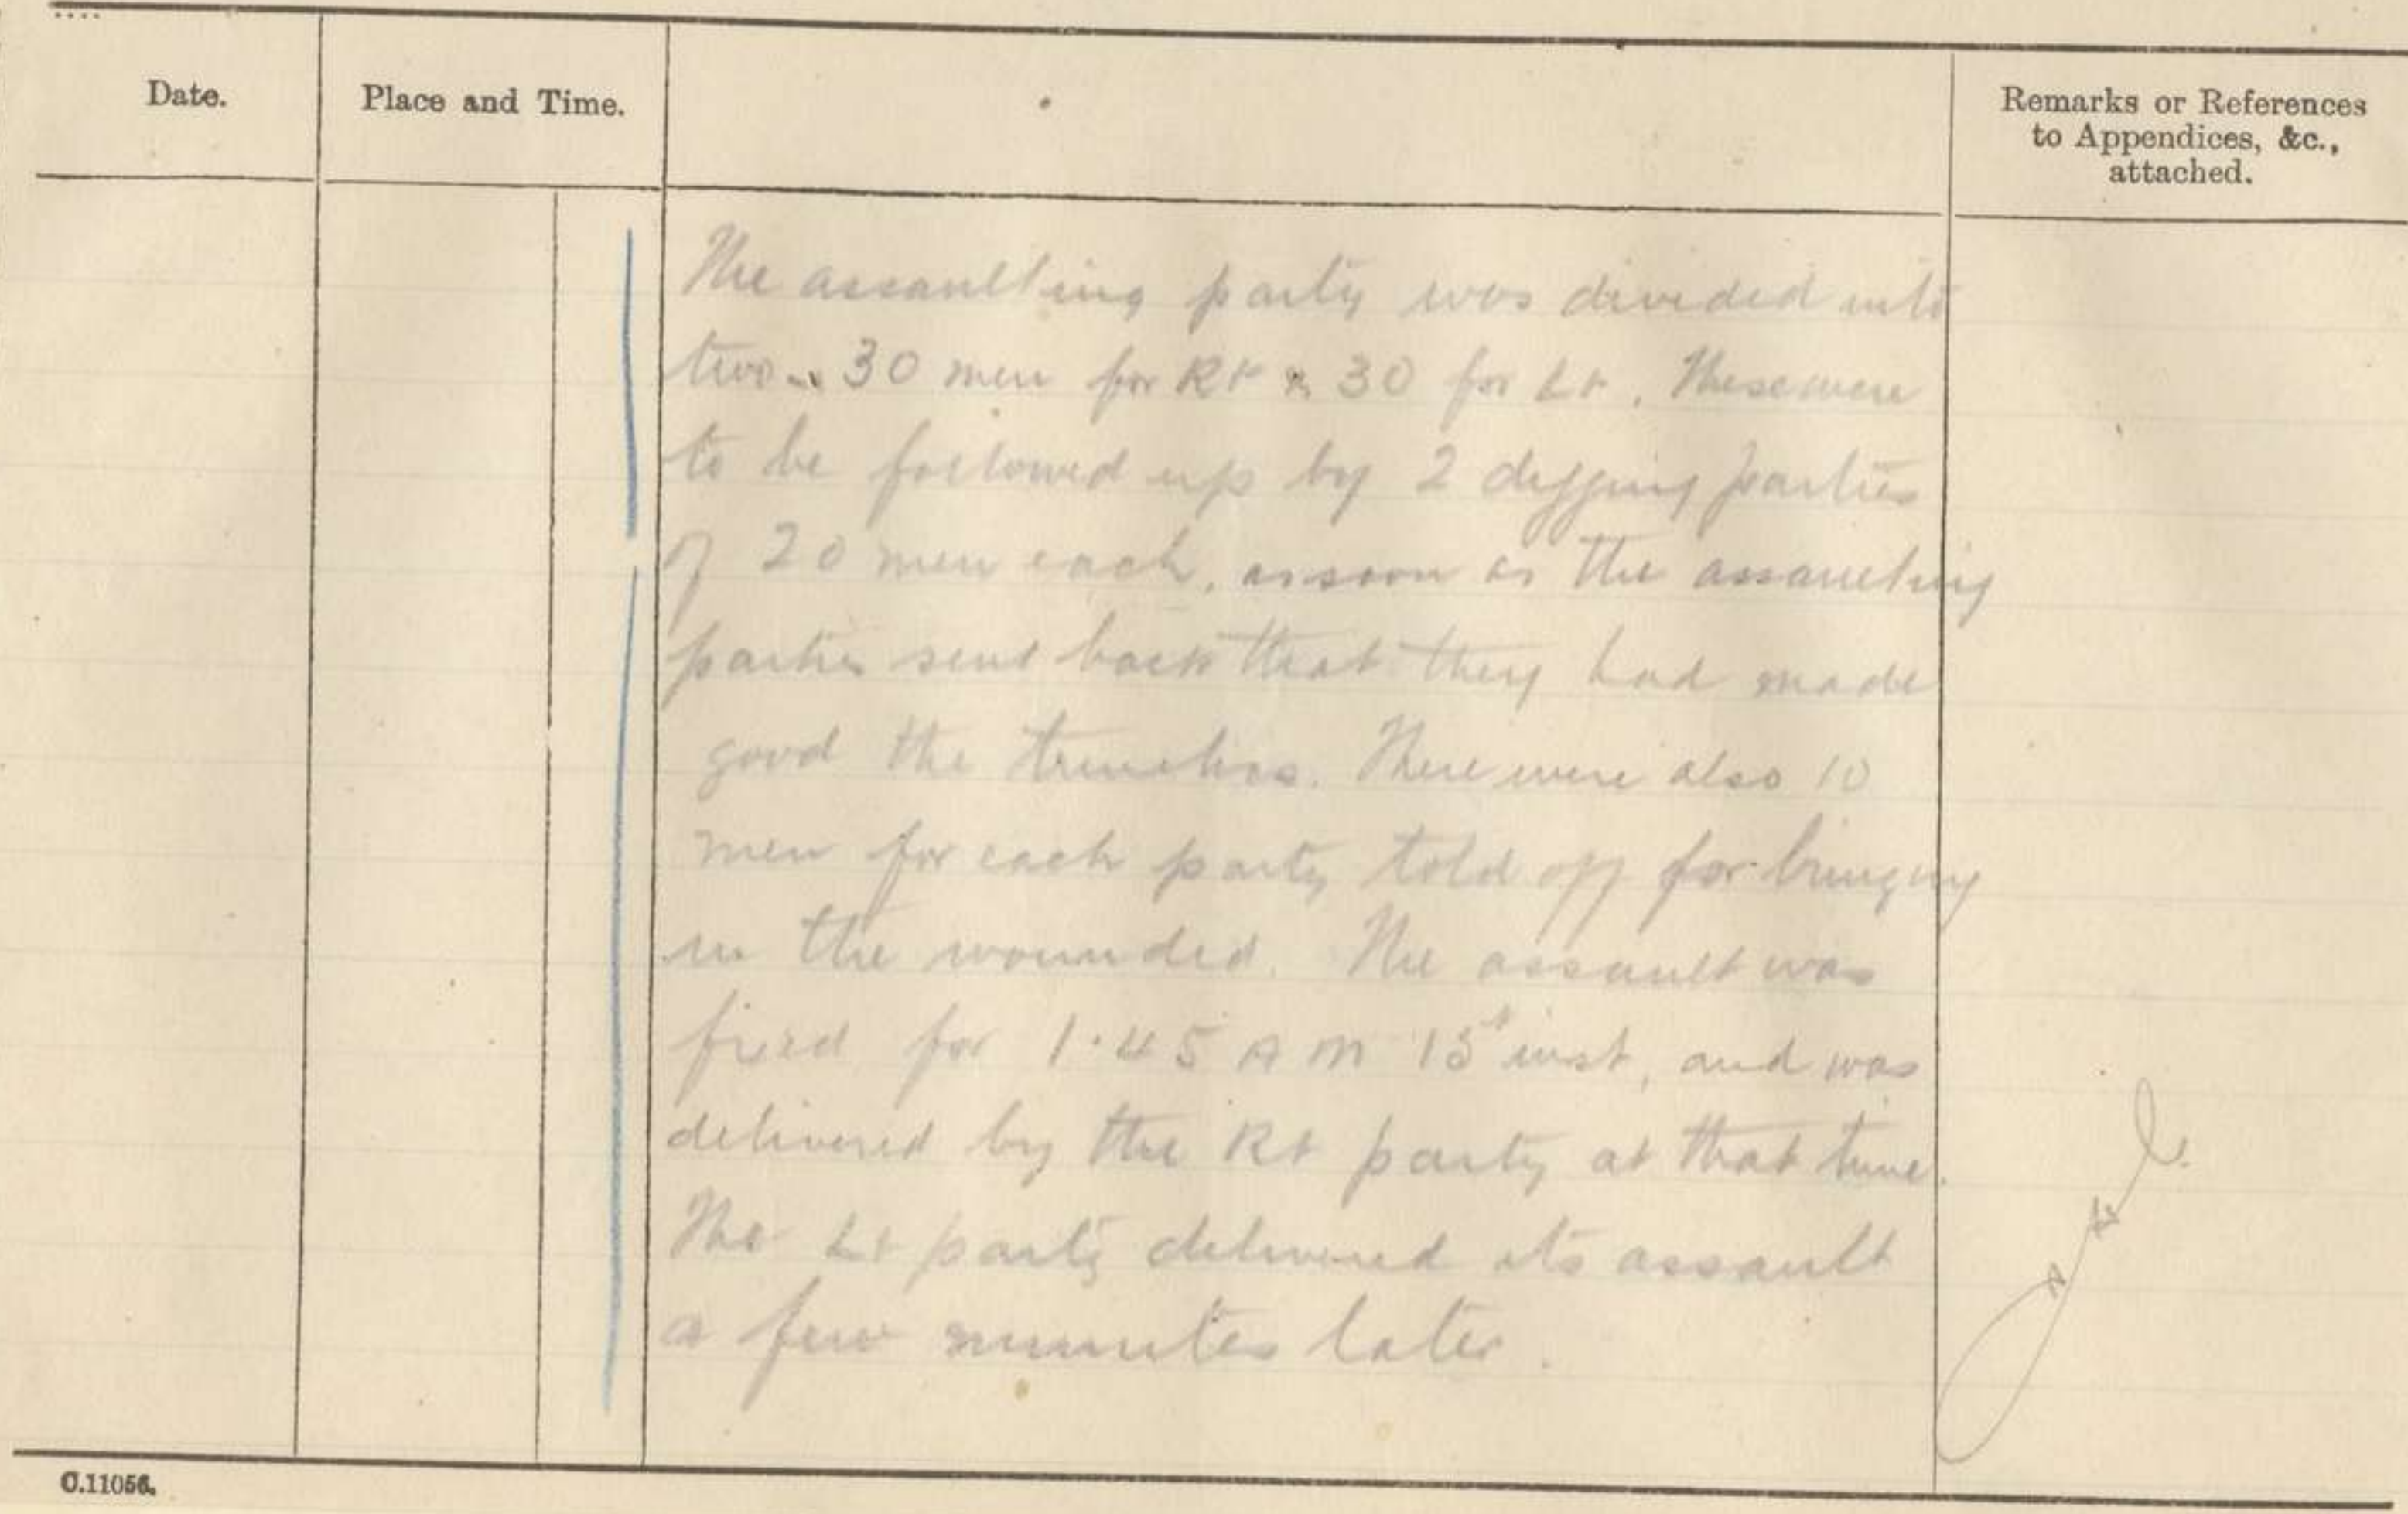 Date.
Place and Time.
Remarks or References
to Appendices, &c.,
attached.
The assaulting party was divided into
two 30 men for Rt & 30 for Lt. These were
to be followed up by 2 digging parties
of 20 men each, as soon as the assaulting
parties send back that they had made
good the trenches. There were also 10
men for each party told off for bringing
in the wounded. The assault was
fixed for 1.45 AM 15t inst, and was
delivered by the Rt party at that time.
The Lt party delivered its assault
a few minutes later.
C.11056.